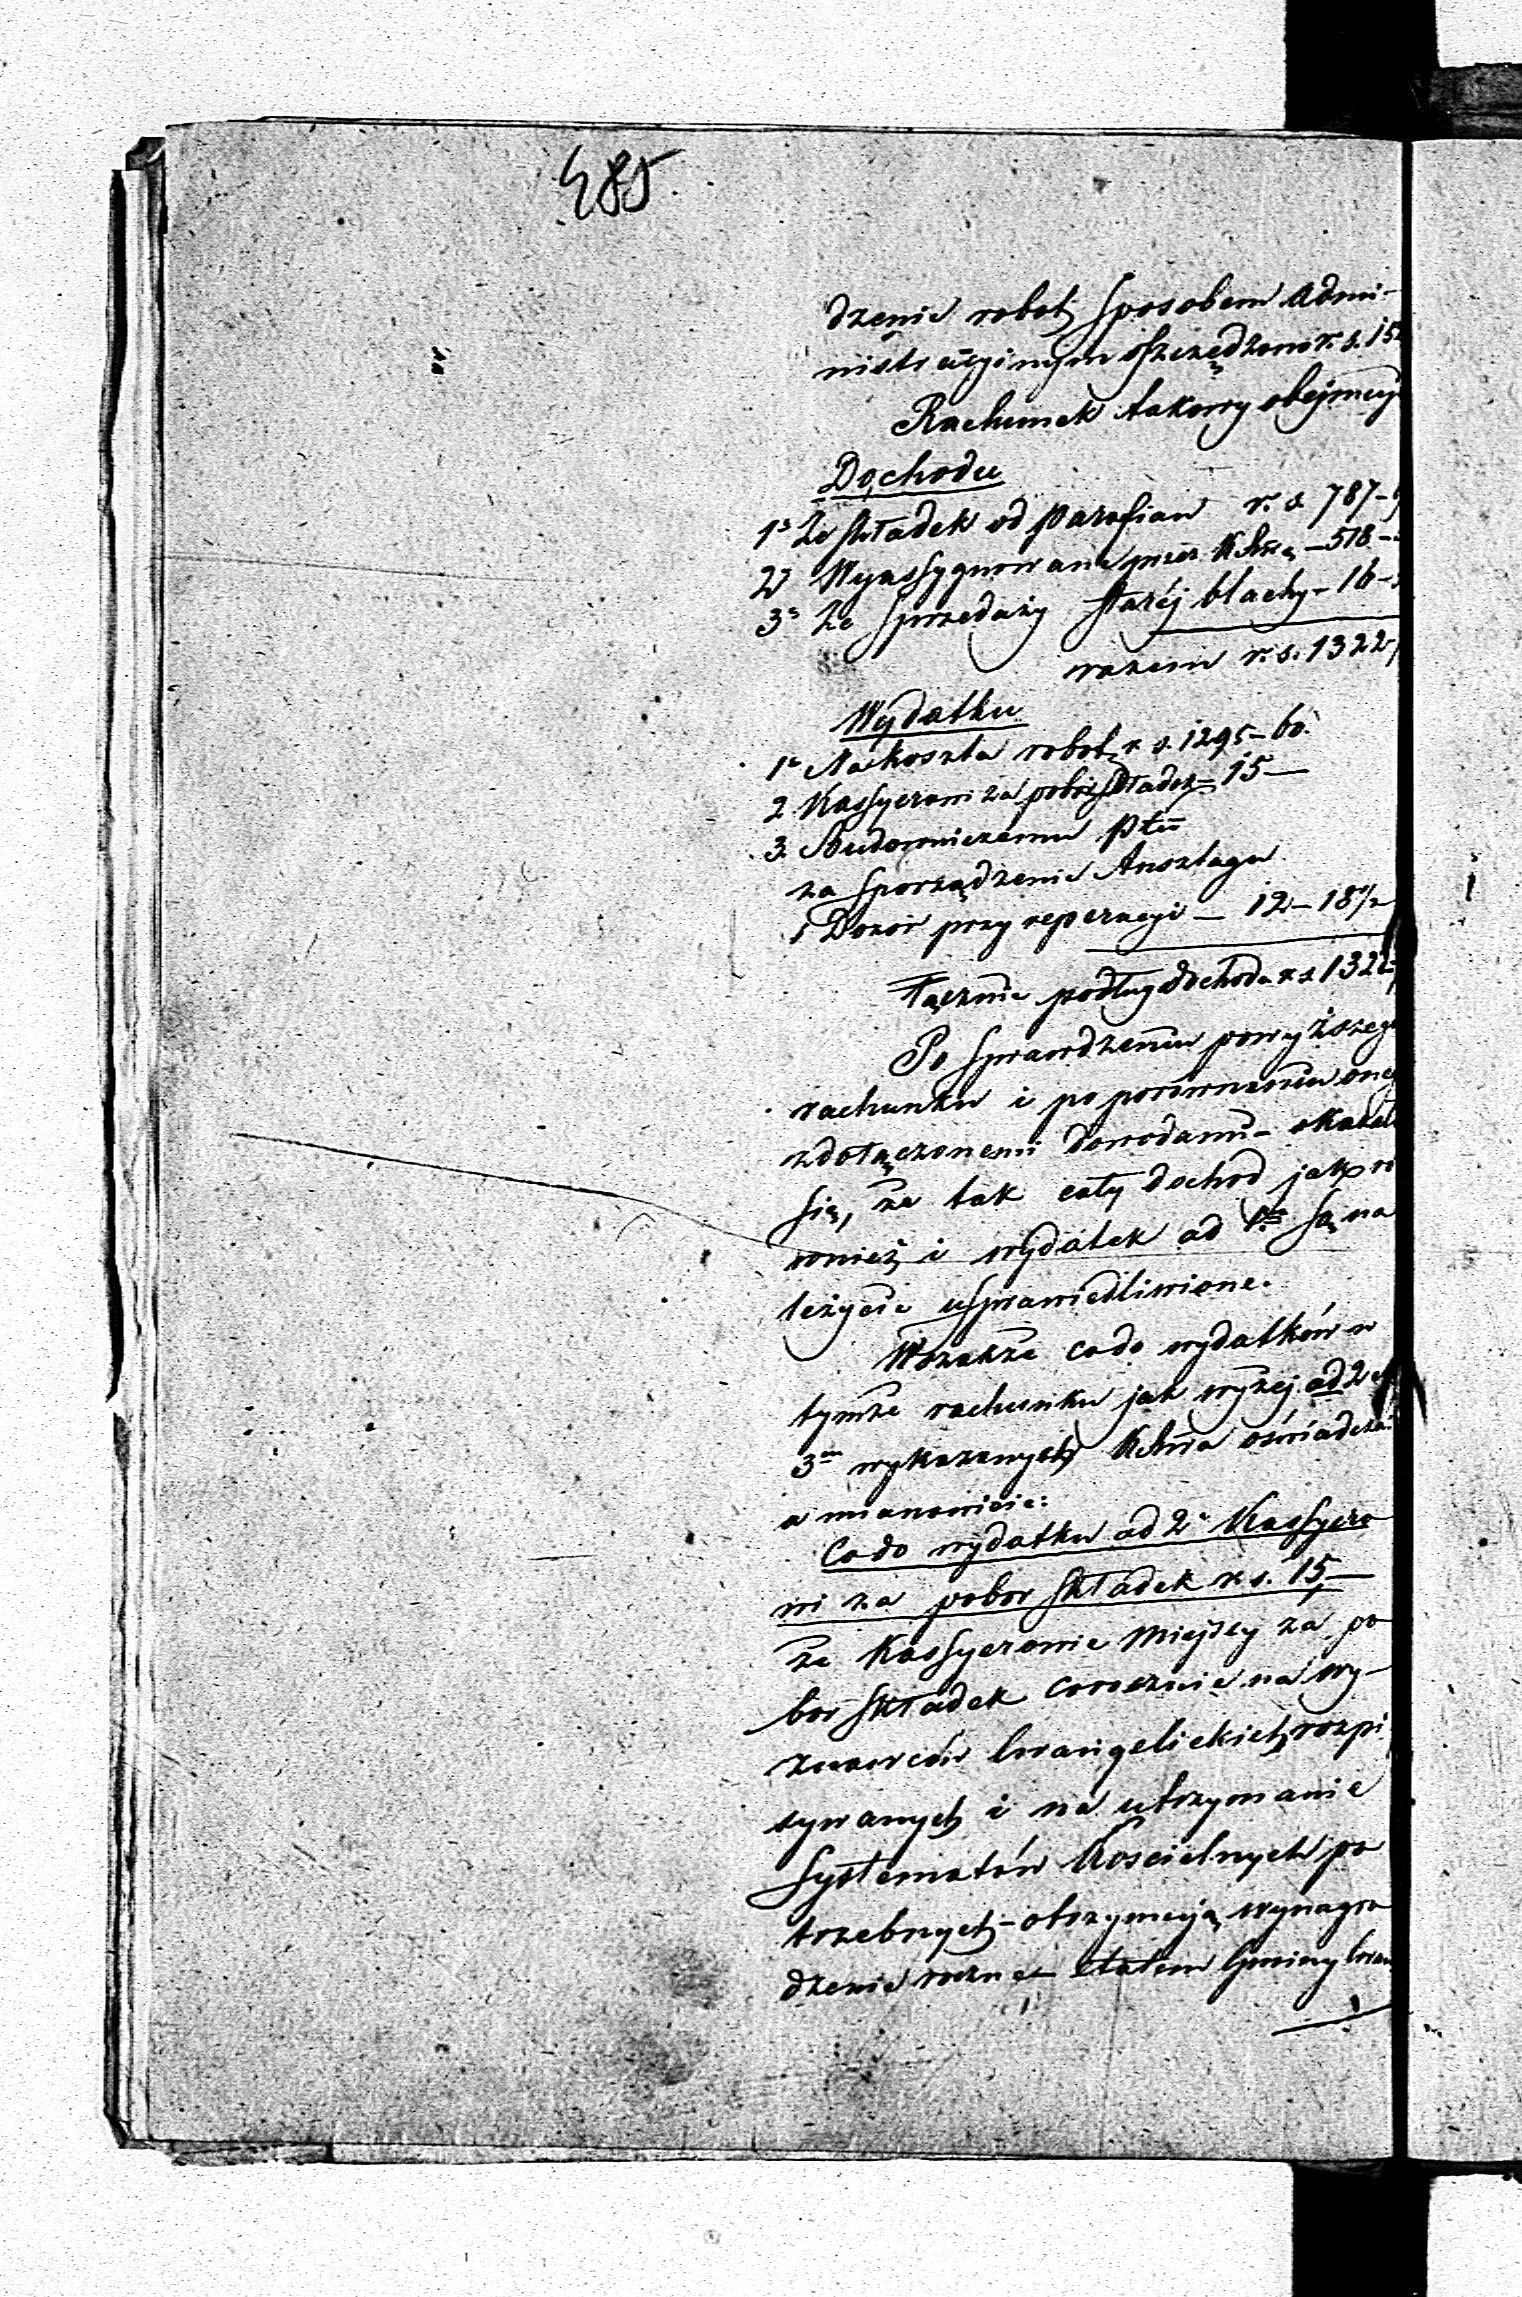 485
dzenie robot sposobem Admi-
nistracyinym oszczędzono r. s. 15
Rachunek takowy obejmuj
Dochodu
1s Ze składek od Parafian r. s. 787-
2 Wyassygnowane przez –518–
3s Ze sprzedaży starej blachy – 16–
razem r. s. 1322
Wydatku
1e Na koszta robot r. s. 1295–60.
2. Kassyerowi za pobór składek – 15 —
3. Budowniczemu Ptu
za sporządzenie Ansztagu
i Dozór przy reperacyi — 12 – 18½
Łącznie podług dochodu r s 1322
Po sprawdzeniu powyższeg
rachunku i po porównaniu oneg
z dołączonemi dowodami – okazał
się, że tak cały dochod jako ró
wnież i wydatek ad 1m są na
leżycie usprawiedliwione.
Wszakże co do wydatków w
tymże rachunku jak wyżej ad 2
3m wykazanych oświadcza
a mianowicie:
Co do wydatku ad 2o Kassyero
wi za pobor składek r s. 15 —
że Kassyerowie Miejscy za po
bor składek corocznie na wy-
znawców Ewangelickich rozpi
sywanych i na utrzymanie
systematów Kościelnych po
trzebnych – otrzymują wynagro
dzenie roczne – etatem Gminy Ewan